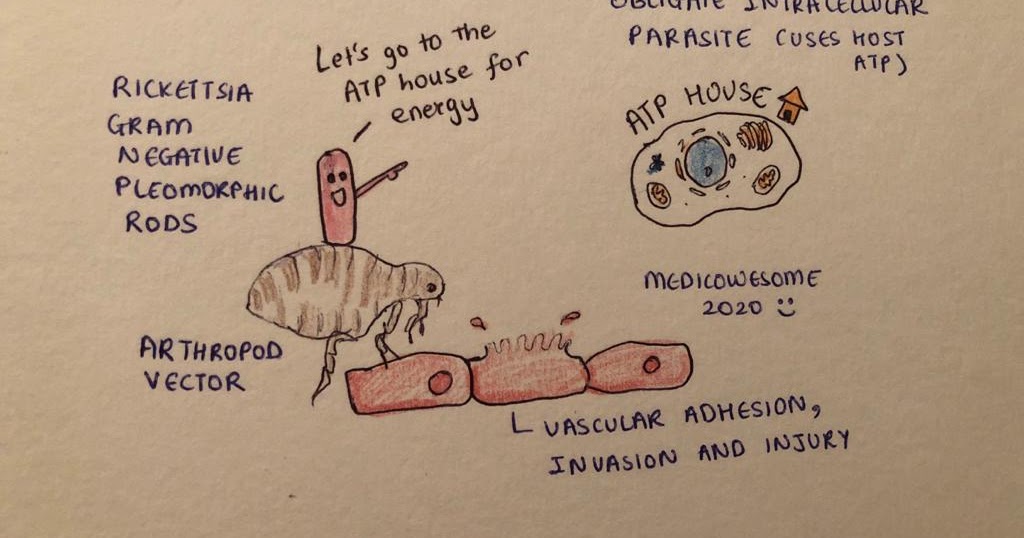 OBLIGATE INTRACELLULAR
PARASITE (USES HOST
ATP)
Let's go to the
ATP house for
energy
RICKETTSIA
GRAM
NEGATIVE
PLEOMORPHIC
RODS
ATP HOUSE
MEDICOWESOME
2020
ARTHROPOD
VECTOR
VASCULAR ADHESION,
INVASION AND INJURY